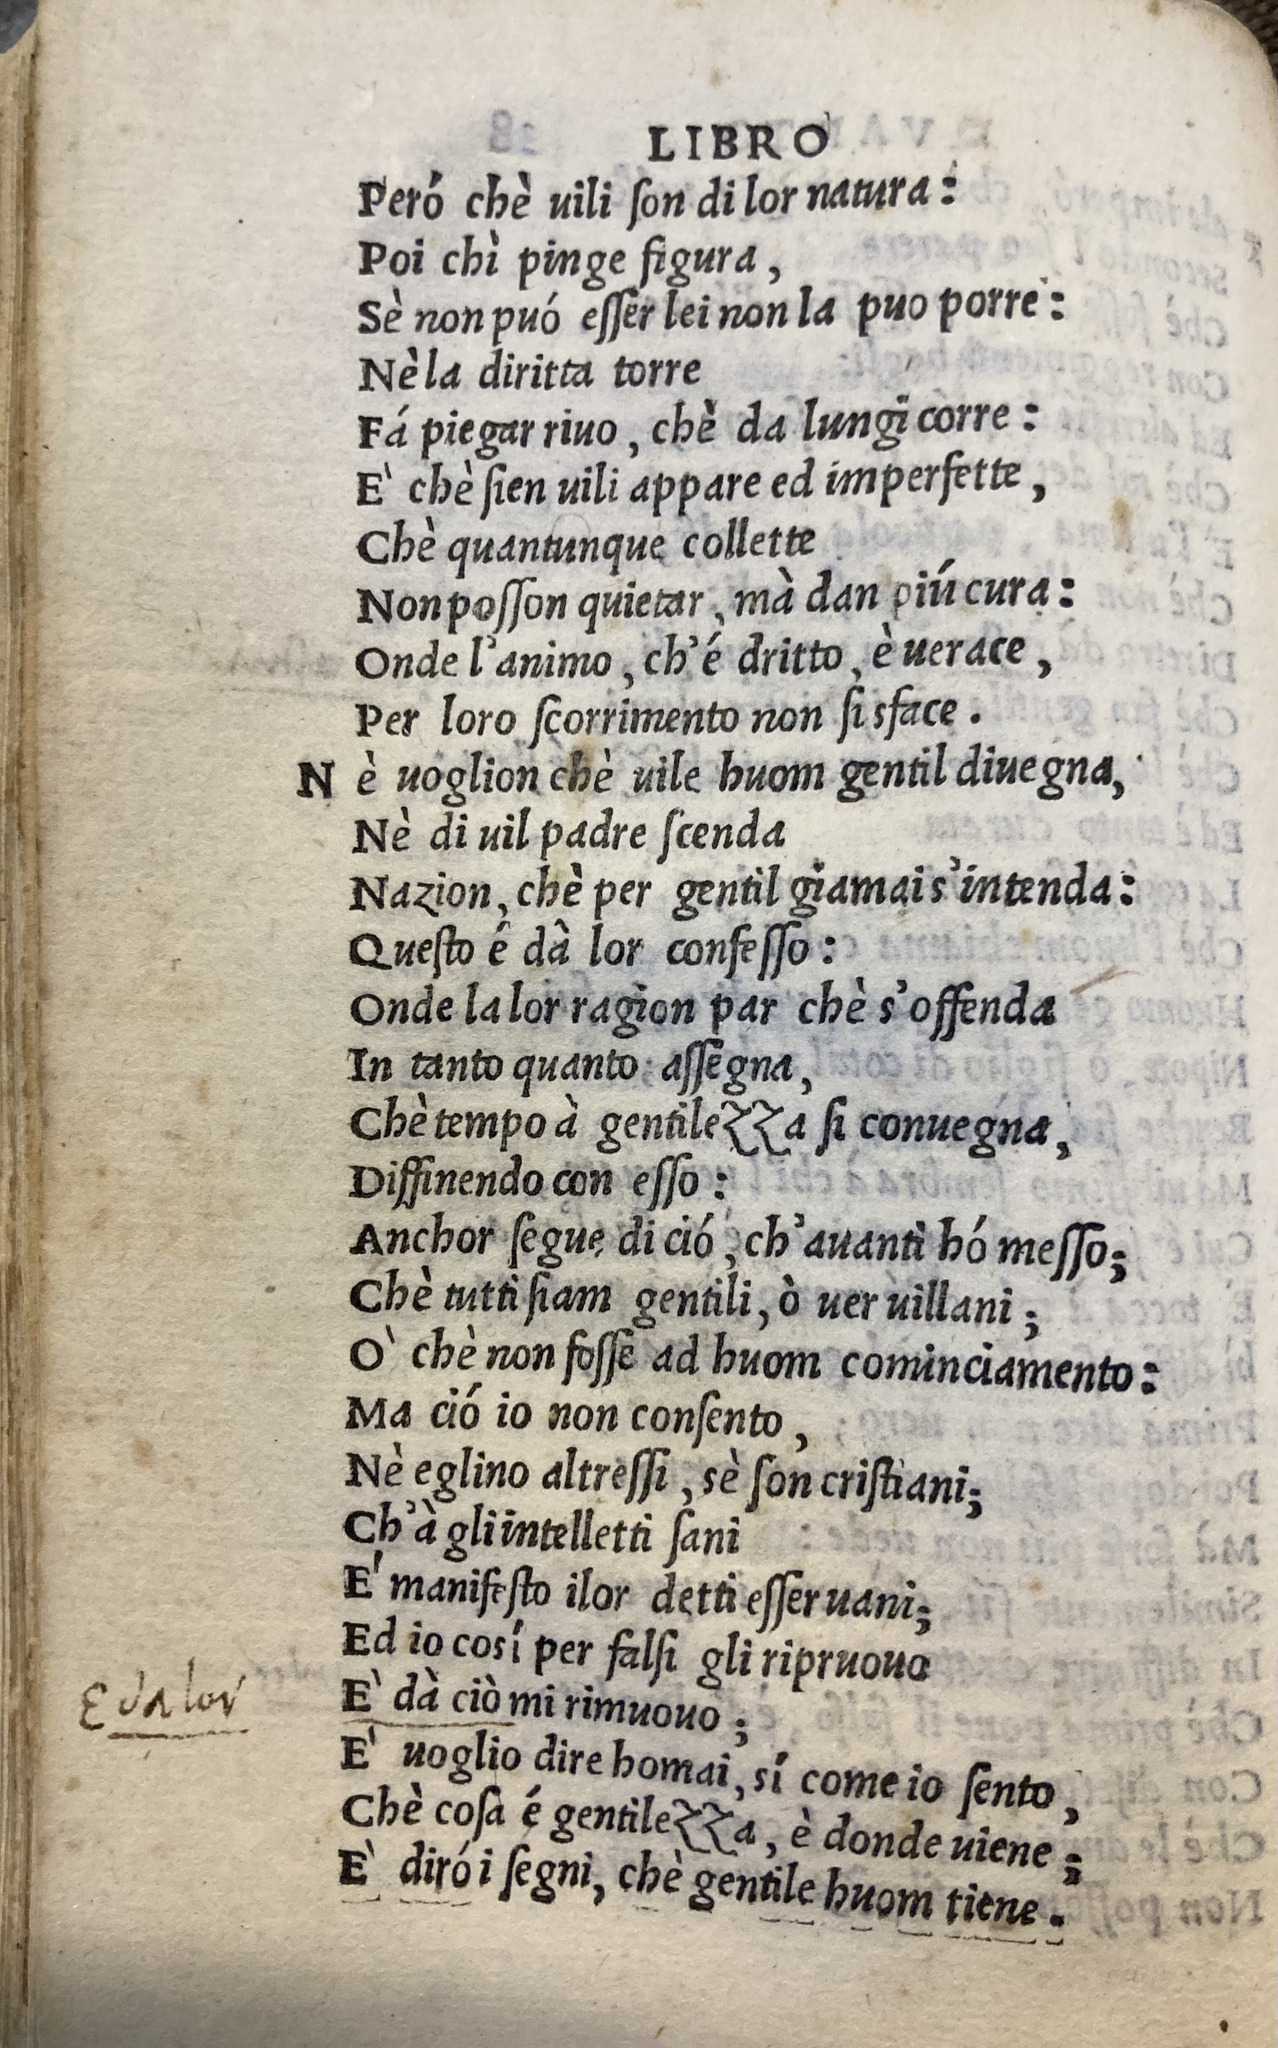 LIBRO
Peró chè uili ſon di lor natura:
Poi chì pinge figura,
Sè non puó eſſer lei non la puo porre:
Nè la diritta torre
Fá piegar riuo, chè da lungi corre:
E' chè ſien uili appare ed imperfette,
Chè quantunque collette
Non poſſon quietar, mà dan piú cura:
Onde l'animo, ch'é dritto, è uerace,
Per loro ſcorrimento non ſi sface.
N è uoglion chè uile huom gentil diuegna,
Nè di uil padre ſcenda
Nazion, chè per gentil giamai s'intenda:
Queſto é dâ lor confeſſo:
Onde la lor ragion par chè s'offenda
In tanto quanto aſſegna,
Chè tempo à gentilezza ſi conuegna,
Diffinendo con eſſo:
Anchor ſegue di ció, ch'auanti hó meſſo;
Chè tutti ſiam gentili, ò uer uillani;
O' chè non foſſe ad huom cominciamento:
Ma ció io non conſento,
Nè eglino altreſſi, sè ſon criſtiani;
Ch'à gli intelletti ſani
E' manifeſto i lor detti eſſer uani;
Ed io cosí per falſi gli ripruouo
E dalor
E' dà ciò mi rimuouo;
E' uoglio dire homai, sí come io ſento,
Chè coſa é gentilezza, è donde uiene;
E' diró i ſegni, chè gentile huom tiene.